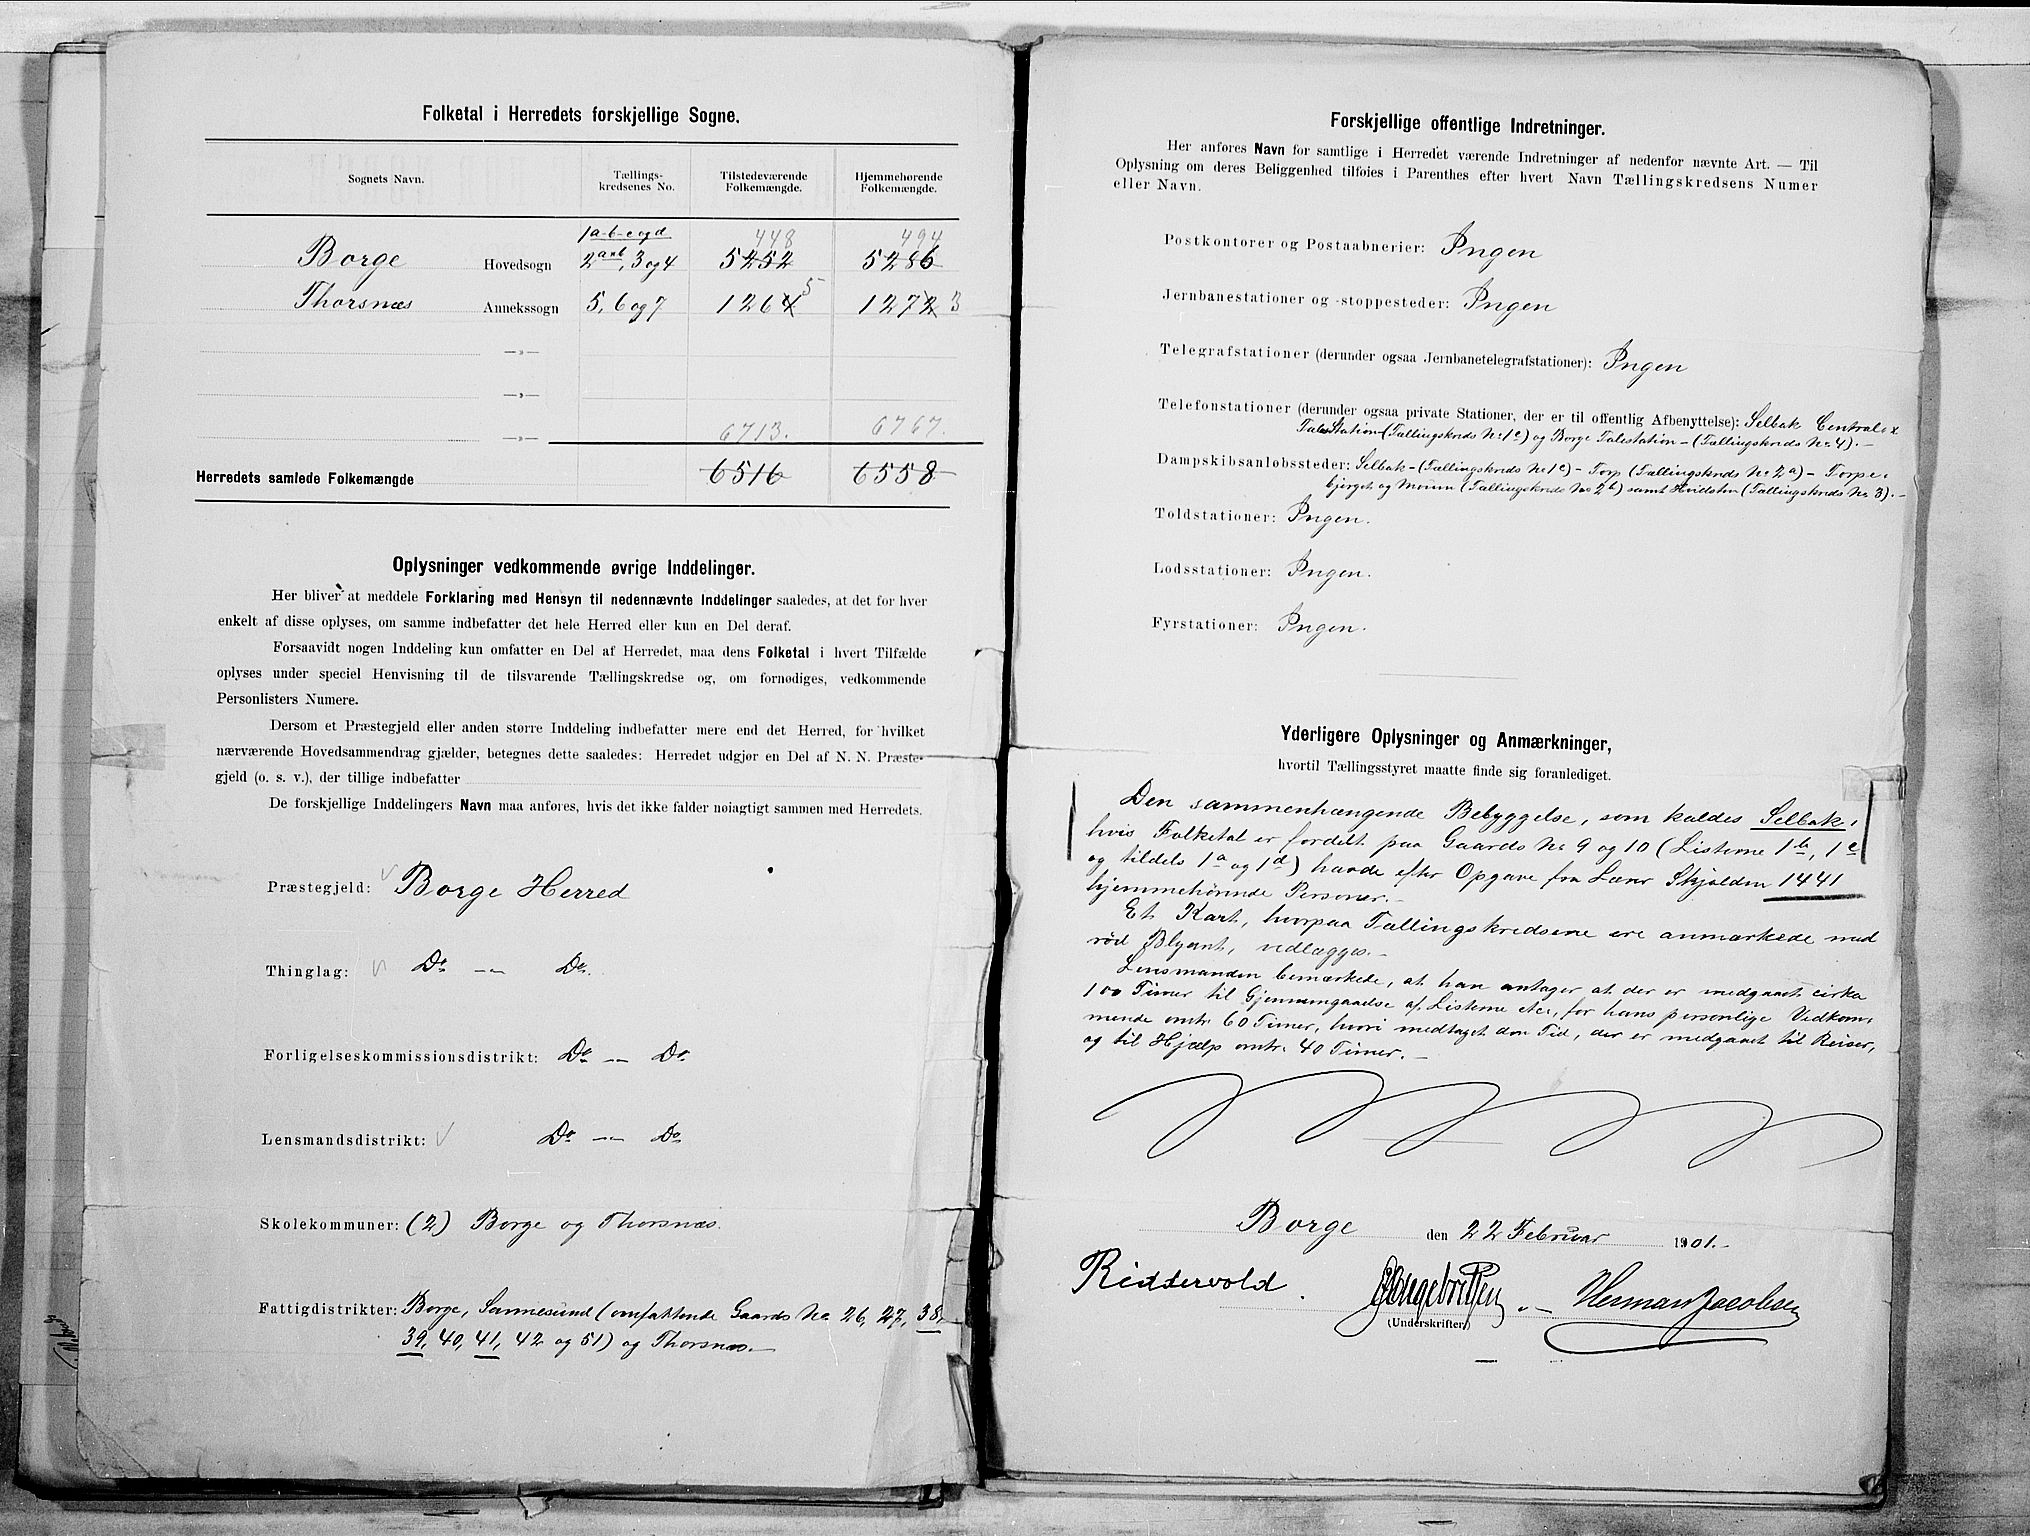 Folketal i Herredets forskjellige Sogne.
Sognets Navn. Tællings-kredsenes No. Tilstedeværende Folkemængde. Hjemmehørende Folkemængde.
1a-b-c og d 448 494
Borge Hovedsogn 2a og b, 3 og 4 5252 5286
Thorsnæs Annekssogn 5, 6 og 7 1264 5 1272 3
—»—
—»—
—»— 6713. 6767.
Herredets samlede Folkemængde 6516 6558
Oplysninger vedkommende øvrige Inddelinger.
Her bliver at meddele Forklaring med Hensyn til nedennævnte Inddelinger saaledes, at det for hver
enkelt af disse oplyses, om samme indbefatter det hele Herred eller kun en Del deraf.
Forsaavidt nogen Inddeling kun omfatter en Del af Herredet, maa dens Folketal i hvert Tilfælde
oplyses under speciel Henvisning til de tilsvarende Tællingskredse og, om fornødiges, vedkommende
Personlisters Numere.
Dersom et Præstegjeld eller anden større Inddeling indbefatter mere end det Herred, for hvilket
nærværende Hovedsammendrag gjælder, betegnes dette saaledes: Herredet udgjør en Del af N. N. Præste-
gjeld (o. s. v.), der tillige indbefatter
De forskjellige Inddelingers Navn maa anføres, hvis det ikke falder nøiagtigt sammen med Herredets.
Præstegjeld: Borge Herred
Thinglag: Do — Do.
Forligelseskommissionsdistrikt: Do — Do
Lensmandsdistrikt: Do — Do
Skolekommuner: (2) Borge og Thorsnæs.
Fattigdistrikter: Borge, Sannesund (omfattende Gaards No 26, 27, 38,
39, 40, 41, 42 og 51) og Thorsnæs.—
Forskjellige offentlige Indretninger.
Her anføres Navn for samtlige i Herredet værende Indretninger af nedenfor nævnte Art. — Til
Oplysning om deres Beliggenhed tilføies i Parenthes efter hvert Navn Tællingskredsens Numer
eller Navn.
Postkontorer og Postaabnerier: Ingen
Jernbanestationer og -stoppesteder: Ingen
Telegrafstationer (derunder ogsaa Jernbanetelegrafstationer): Ingen
Telefonstationer (derunder ogsaa private Stationer, der er til offentlig Afbenyttelse): Selbak Central-
Station (Tællingskreds No 1c) og Borge Talestation — (Tællingskreds No 4).—
Dampskibsanløbssteder: Selbak — (Tællingskreds No 1c) — Torp (Tællingskreds No 2a) — Torpe-
bjerget og Moum (Tællingskreds No 2b) samt Hvidsten (Tællingskreds No 3).—
Toldstationer: Ingen.
Lodsstationer: Ingen.
Fyrstationer: Ingen.
Yderligere Oplysninger og Anmærkninger,
hvortil Tællingsstyret maatte finde sig foranlediget.
Den sammenhængende Bebyggelse, som kaldes Selbak,
hvis Folketal er fordelt paa Gaards No 9 og 10 (Listerne 1b, 1c
og tildels 1a og 1d) havde efter Opgave fra Lærer Skjolden 1441
hjemmehørende Personer.—
Et Kart, hvorpaa Tællingskredsene ere anmærkede med
rød Blyant, vedlægges.—
Lensmanden bemærkede, at han antager at der er medgaaet cirka
100 Timer til Gjennemgaaelse af Listerne etc, for hans personlige Vedkom-
mende omtr. 60 Timer, hvori medtaget den Tid, der er medgaaet til Reiser,
og til Hjælp omtr. 40 Timer.—
Borge den 22 Februar 1901.-
Riddervold. Engebretsen Herman Jacobsen
(Underskrifter)